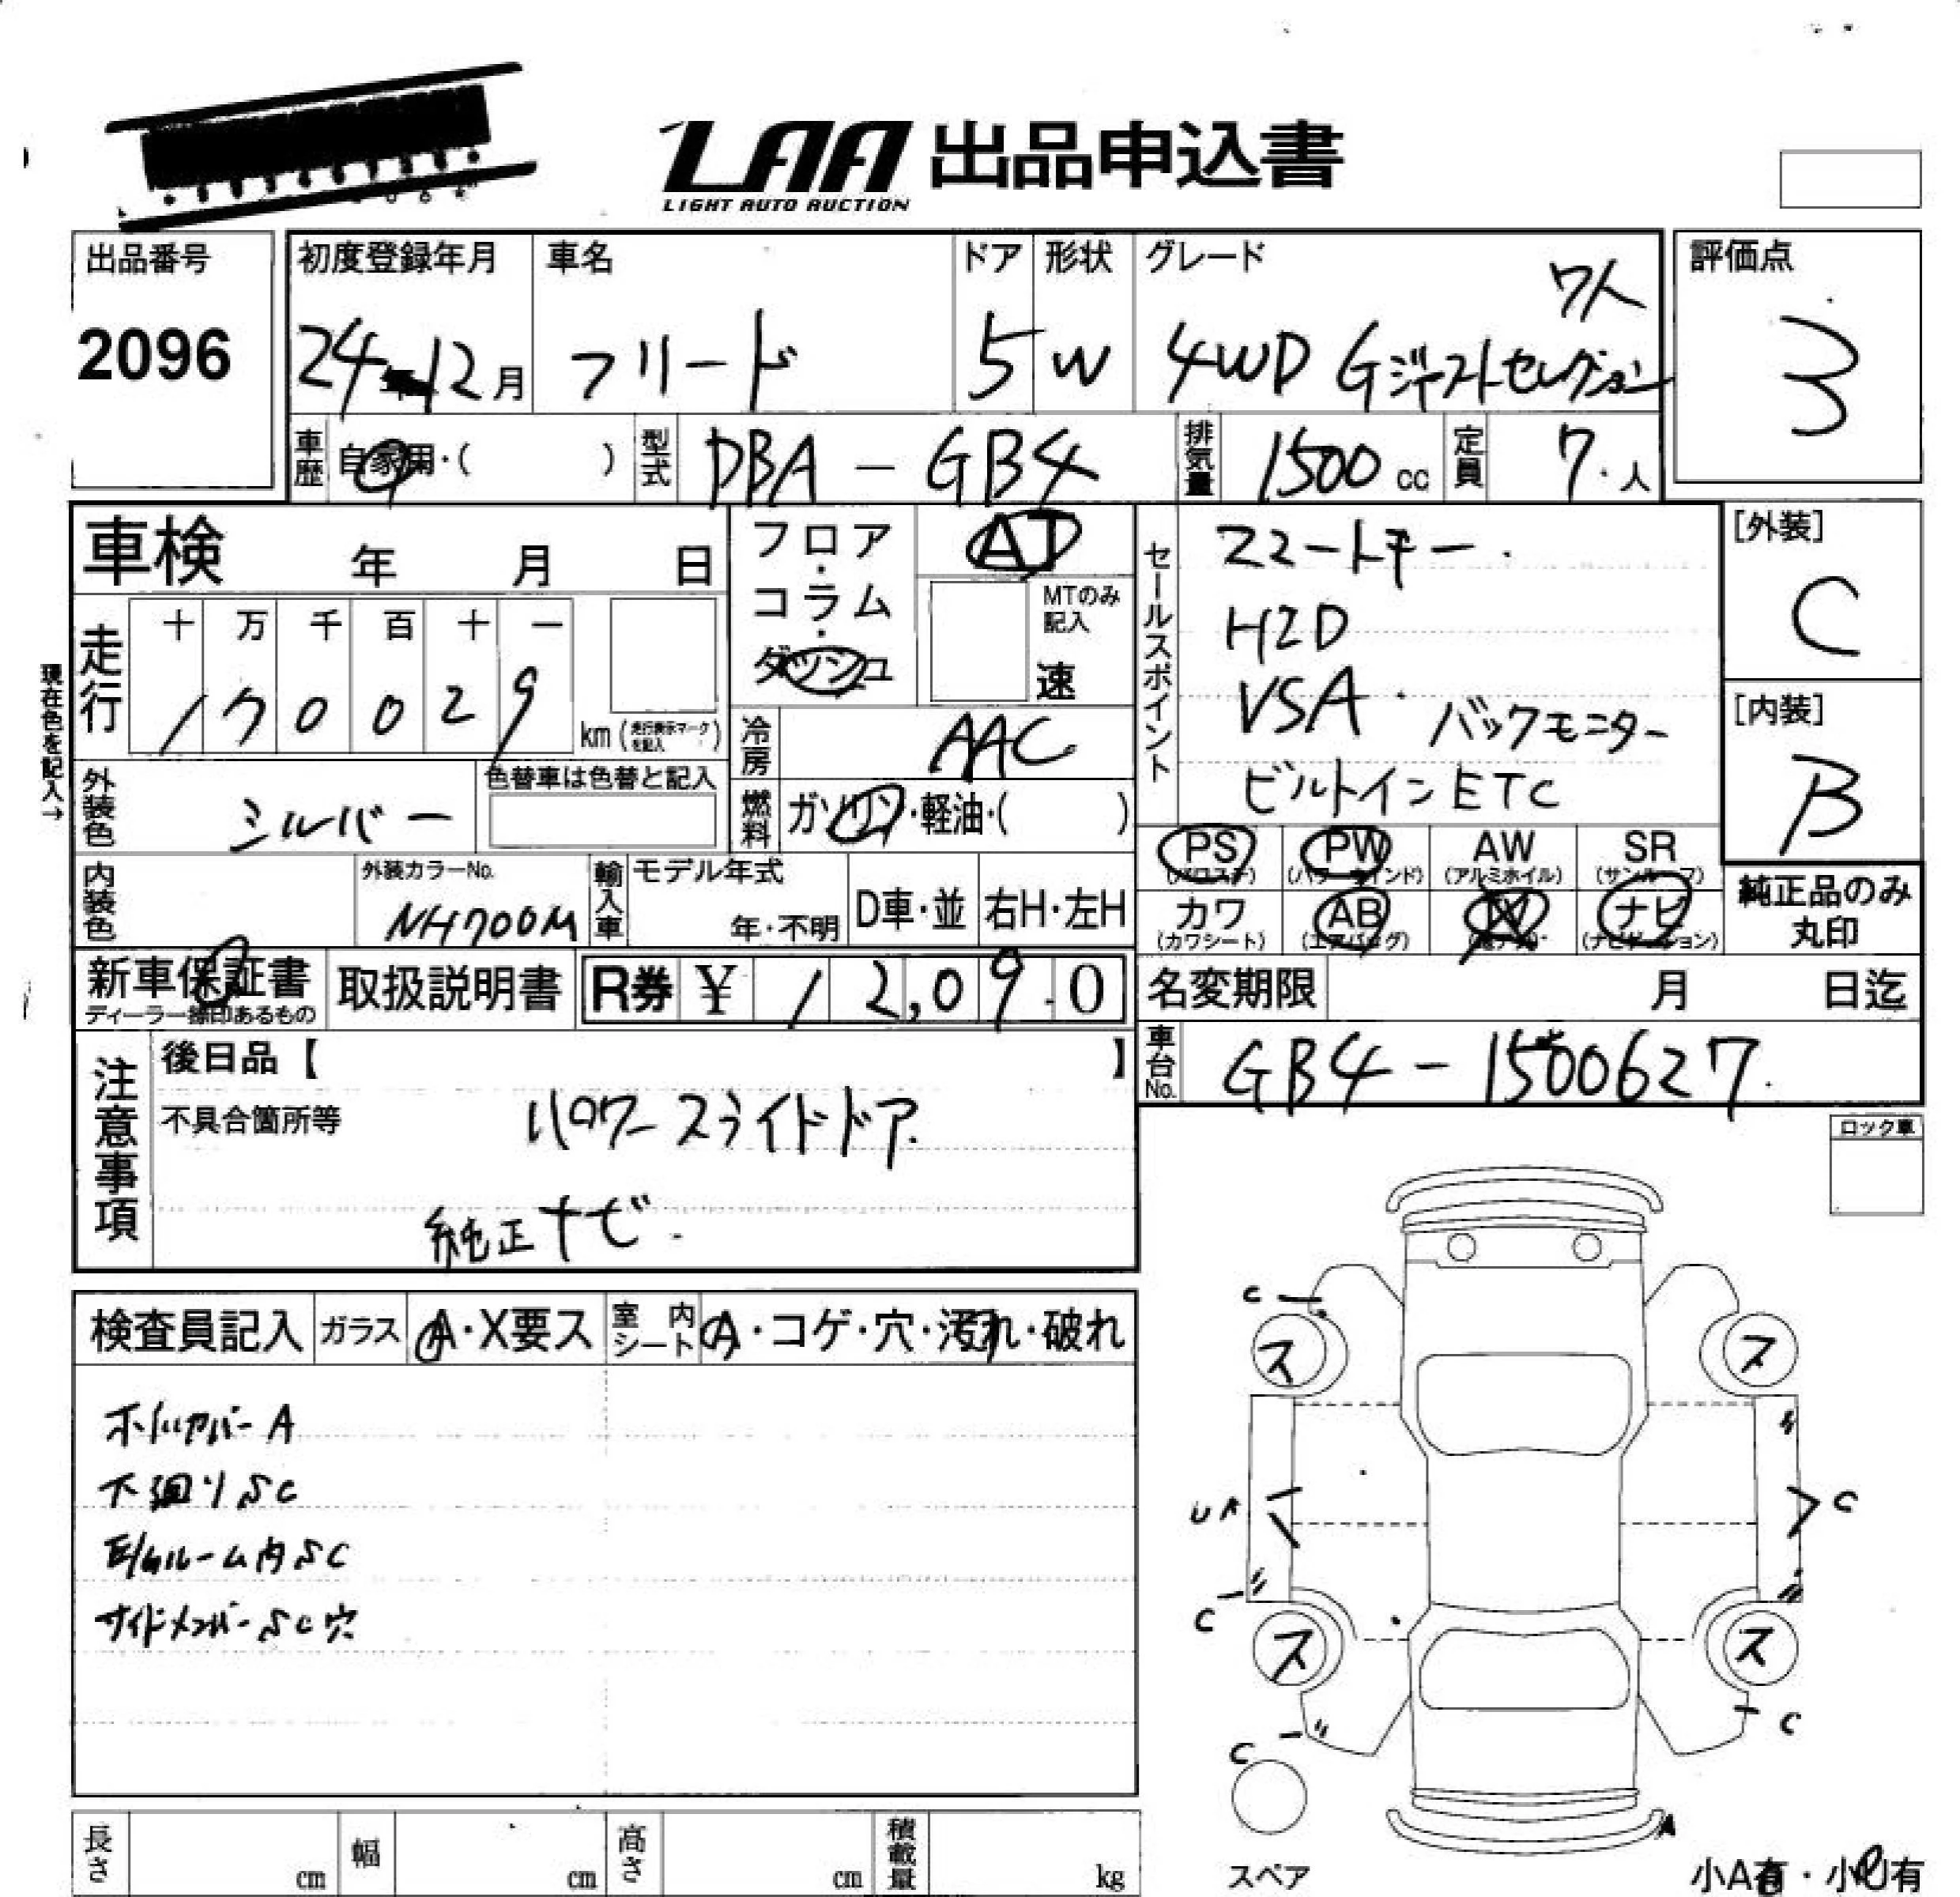 LAA 出品申込書
LIGHT AUTO AUCTION
出品番号
2096
初度登録年月
24年12月
車名
フリード
ドア
5
形状
W
グレード
7人
4WD Gジャストセレクション
評価点
3
車歴
自家用・( )
型式
DBA-GB4
排気量
1500 cc
定員
7人
車検 年 月 日
フロア・コラム・ダッシュ
AT
MTのみ記入
速
セールスポイント
スマートキー
HID
VSA バックモニター
ビルトインETC
[外装]
C
[内装]
B
現在色を記入→
走行
十 万 千 百 十 一
1 7 0 0 2 9
km (走行表示マークを記入)
冷房
AAC
外装色
シルバー
色替車は色替と記入
燃料
ガソリン・軽油・( )
PS
(パワステ)
PW
(パワーウインド)
AW
(アルミホイル)
SR
(サンルーフ)
内装色
外装カラーNo.
NH700M
輸入車
モデル年式
年・不明
D車・並
右H・左H
カワ
(カワシート)
AB
(エアバッグ)
ナビ
(ナビゲーション)
純正品のみ
丸印
新車保証書
ディーラー捺印あるもの
取扱説明書
R券 ¥ 12,090
名変期限 月 日迄
車台No.
GB4-1500627
注意事項
後日品【 】
不具合箇所等
パワースライドドア
純正ナビ
ロック車
検査員記入
ガラス
A・X要ス
室内シート
A・コゲ・穴・汚れ・破れ
ホイルカバーA
下廻りSC
E/Gルーム内SC
サイドメンバーSC穴
C
ス
ス
UA
C
C
ス
ス
C
C
A
スペア
小A有・小U有
長さ cm
幅 cm
高さ cm
積載量 kg